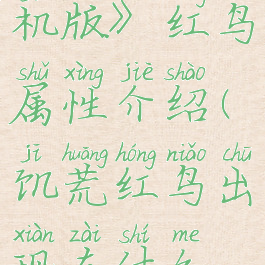 机版》红鸟
shǔ xìng jiè shào
属性介绍(
jī huāng hóng niǎo chū
饥荒红鸟出
xiàn zài shí me
现在什么